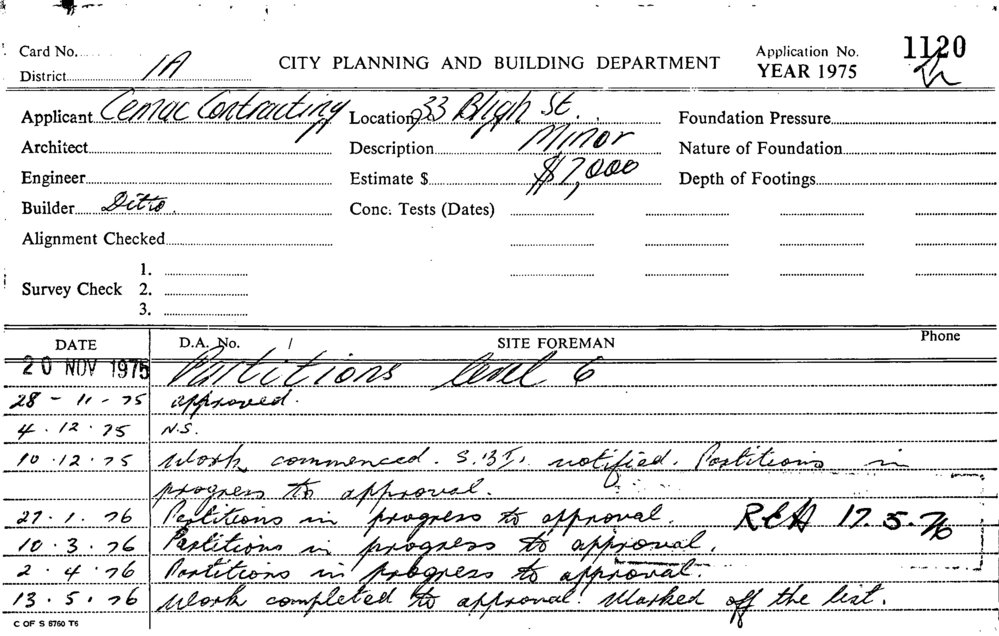 Card No.
District 1A
CITY PLANNING AND BUILDING DEPARTMENT
Application No. 1120
YEAR 1975
Applicant Cemac Contracting
Location 33 Bligh St.
Foundation Pressure
Architect
Description Minor
Nature of Foundation
Engineer
Estimate $ $7,000
Depth of Footings
Builder Ditto.
Conc. Tests (Dates)
Alignment Checked
1.
Survey Check 2.
3.
DATE D.A. No. / SITE FOREMAN Phone
20 NOV 1975 Partitions level 6
28 - 11 - 75 approved.
4 . 12 . 75 N.S.
10 . 12 . 75 Work commenced. S.B.I. notified. Partitions in
progress to approval.
27 . 1 . 76 Partitions in progress to approval. 17.5.76
10 . 3 . 76 Partitions in progress to approval.
2 . 4 . 76 Partitions in progress to approval.
13 . 5 . 76 Work completed to approval. Marked off the list.
C OF S 5760 T6